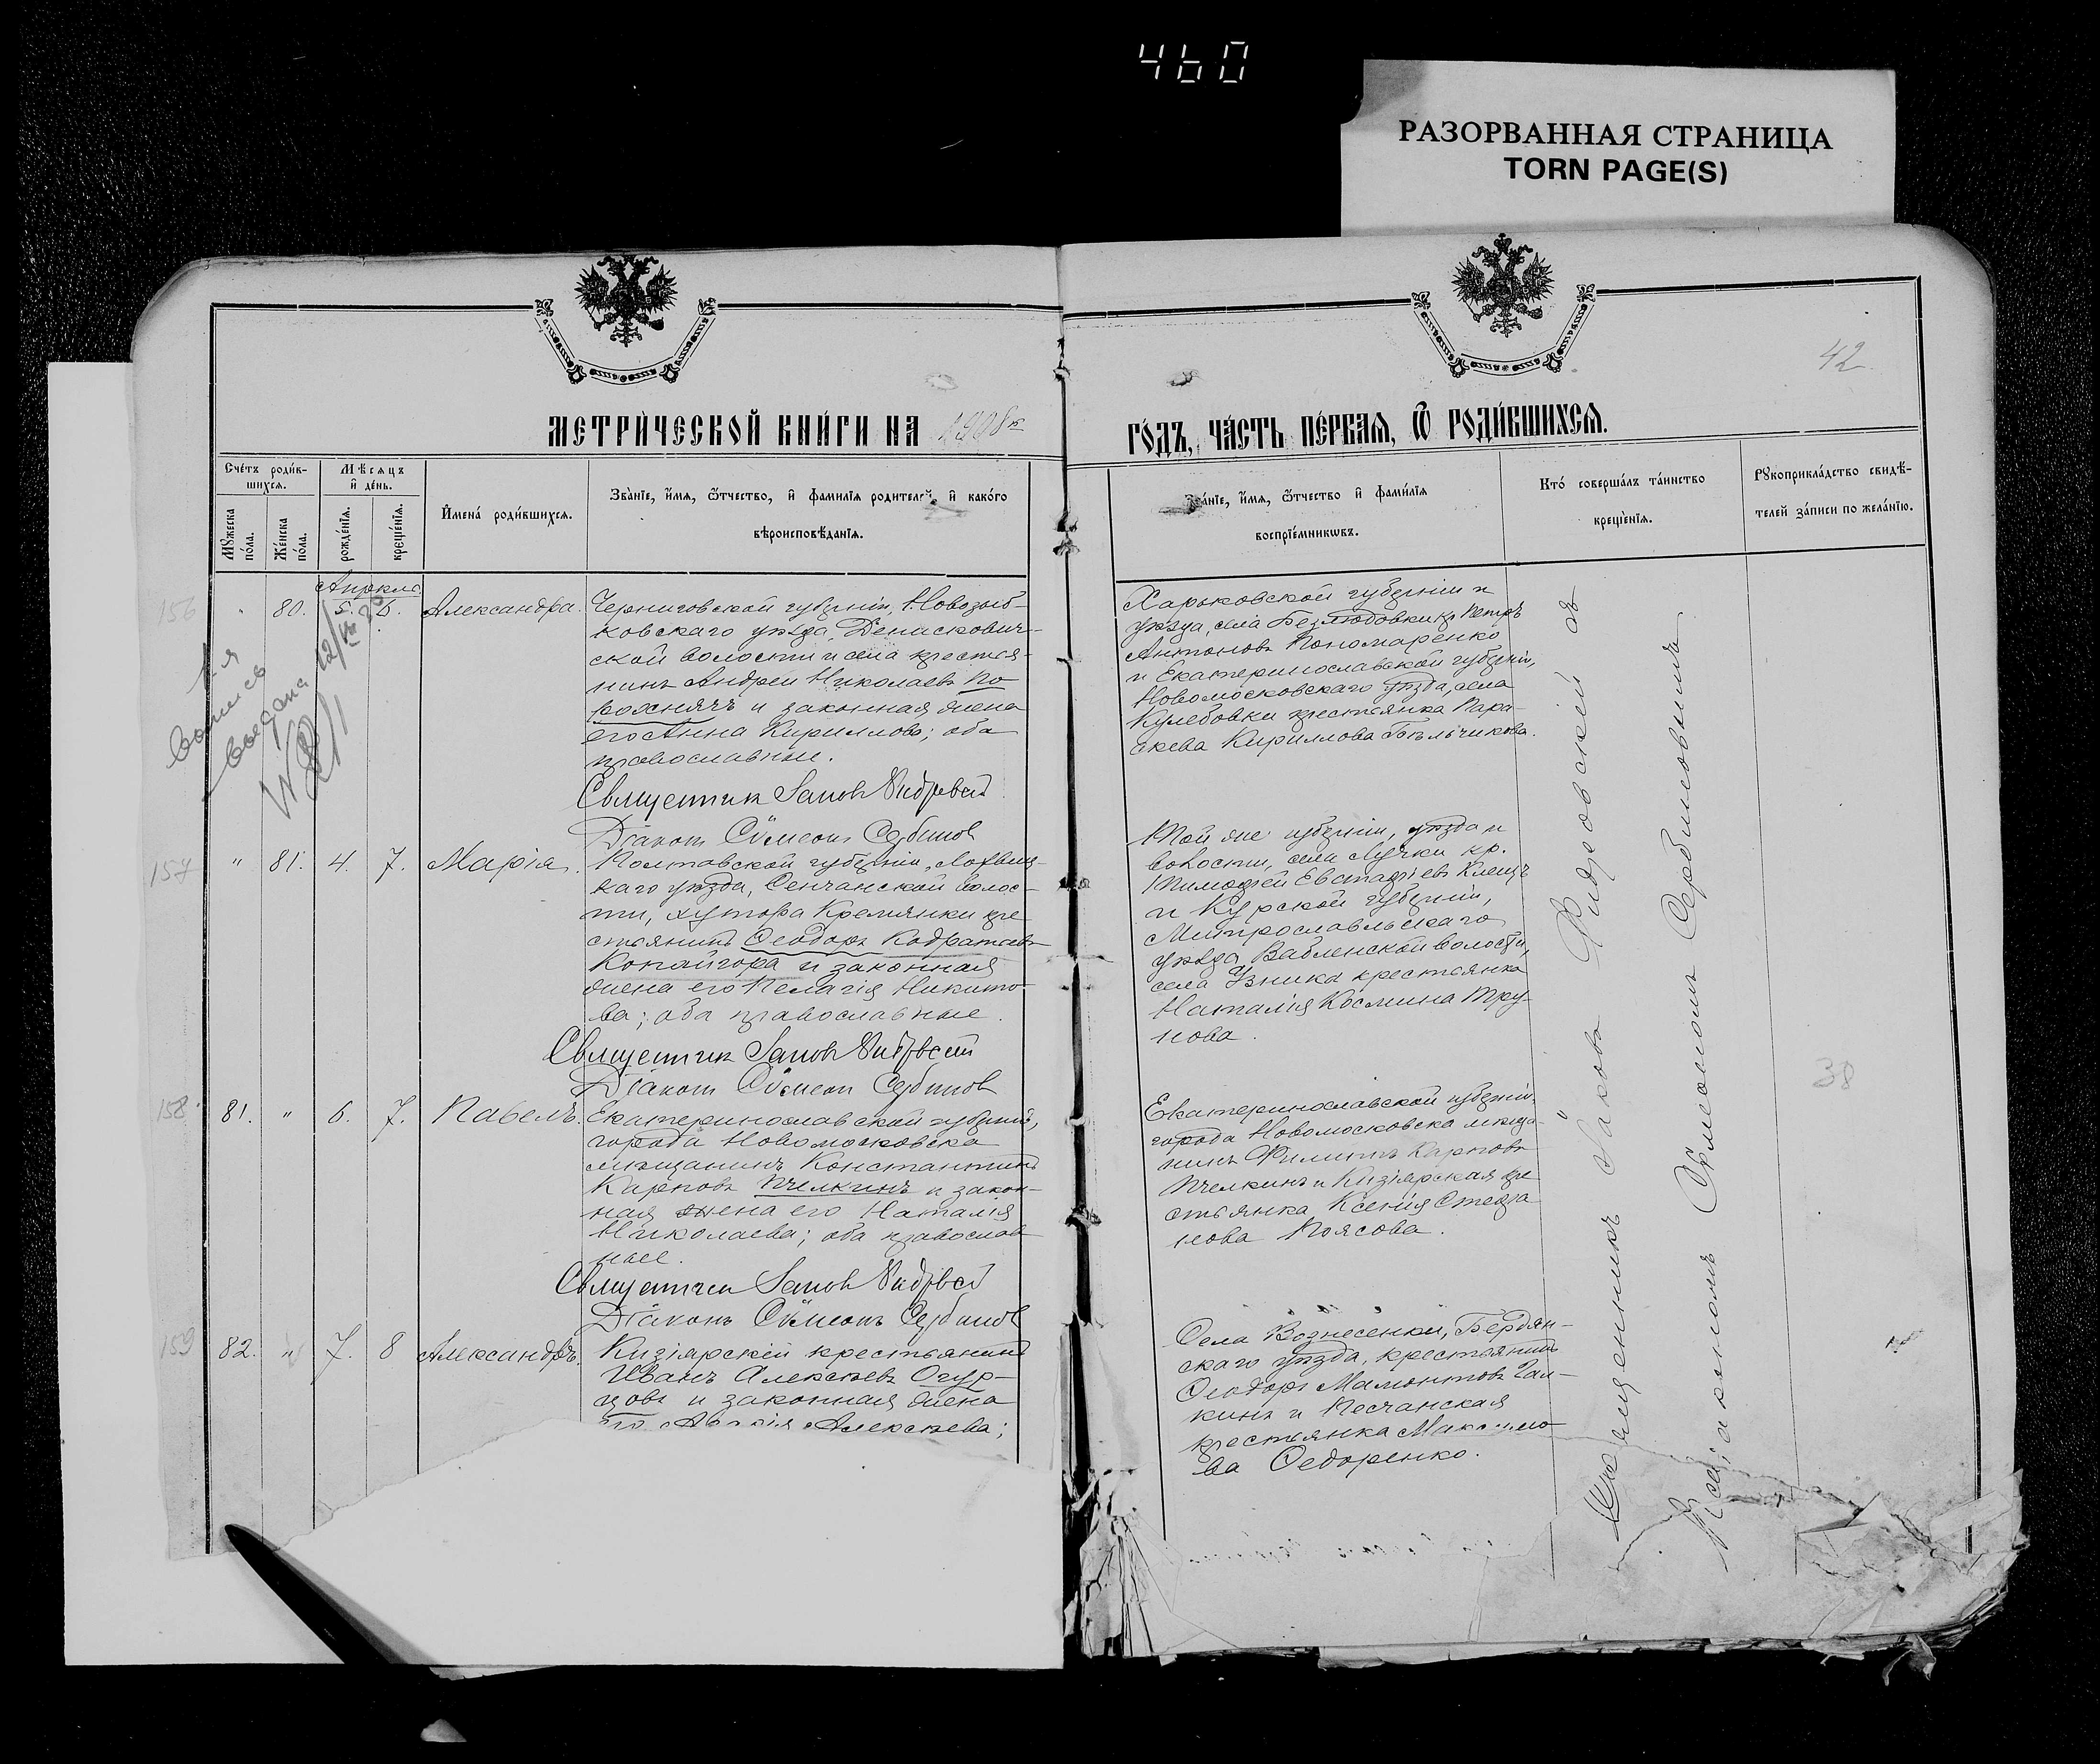 460
РАЗОРВАННАЯ СТРАНИЦА
TORN PAGE(S)
42
МЕТРИ́ЧЕСКОЙ КНИ́ГИ НА 1908й
ГО́ДЪ, ЧА́СТЬ ПЕ́РВАЯ, Ѡ РОДИ́ВШИХСЯ.
Сче́тъ роди́в-
шихся.
Мѣсяцъ
и де́нь.
Мужеска по́ла.
Же́нска по́ла.
рожде́нія.
креще́нія.
Имена́ роди́вшихся.
Зва́ніе, и́мя, ѻ́тчество, и фамилія родителей, и како́го
вѣроисповѣ́данія.
Зва́ніе, и́мя, ѻ́тчество и фами́лія
воспріе́мниковъ.
Кто́ соверша́лъ та́инство
креще́нія.
Рукоприкла́дство свидѣ-
телей за́писи по жела́нію.
Апрѣля
156
" 80. 5. 6. Александра.
Черниговской губерніи, Новозыб-
ковскаго уѣзда, Денискович-
ской волости и села крестья-
нинъ Андрей Николаевъ По
рожнячъ и законная жена
его Анна Кириллова; оба
православные.
Священникъ Іаковъ
Діаконъ Сѵмеонъ Сербиновъ
Харьковской губерніи и
уѣзда, села Безлюдовки кр. Петръ
Антоновъ Пономаренко
и Екатеринославской губерніи,
Новомосковскаго уѣзда, села
Кулебовки крестьянка Пара-
скева Кириллова Бѣльчикова.
157
" 81. 4. 7. Марія.
Полтавской губерніи, Лохвиц-
каго уѣзда, Сенчанской волос-
ти, хутора Кремянки кре
стьянинъ Ѳеодоръ Кодратовъ
Копайгора и законная
жена его Пелагія Никито-
ва; оба православные.
Священникъ Іаковъ
Діаконъ Сѵмеонъ Сербиновъ
Той же губерніи, уѣзда и
волости, села Лучки кр.
Тимофей Евстафіевъ
и Курской губерніи,
уѣзда,
села крестьянка
Наталія Космина Тру-
нова.
158
81. " 6. 7. Павелъ.
Екатеринославской губерніи,
города Новомосковска
мѣщанинъ Константинъ
Карповъ Пчелкинъ и закон-
ная жена его Наталія
Николаева; оба православ
ные.
Священникъ Іаковъ
Діаконъ Сѵмеонъ Сербиновъ
Екатеринославской губерніи
города Новомосковска мѣща-
нинъ Филиппъ Карповъ
Пчелкинъ и Кизіярская кре
стьянка Ксенія Стефа
нова Поясова.
38
159
82. " 7. 8 Александръ.
Кизіярскій крестьянинъ
Иванъ Алексѣевъ Огур-
цовъ и законная жена
его Алексѣева;
Села Вознесенки, Бердян-
скаго уѣзда, крестьянинъ
Ѳеодоръ Мамонтовъ Гал-
кинъ и Песчанская
крестьянка Максимо
ва Федоренко.
Священникъ Іаковъ съ
діакономъ Сѵмеономъ Сербиновымъ